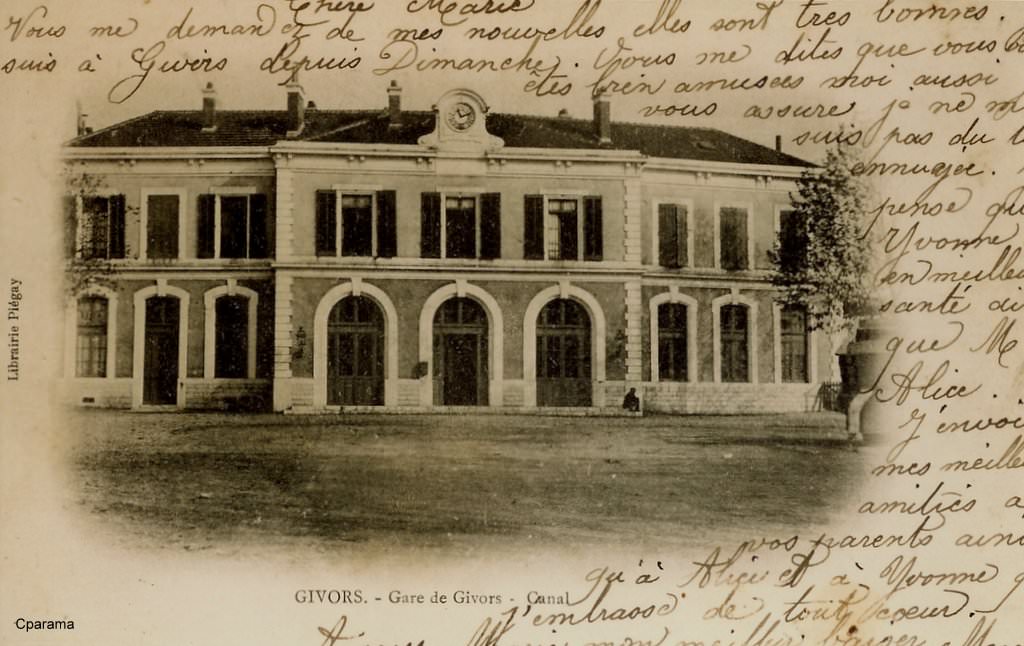 Chère Marie
Vous me demandez de mes nouvelles elles sont très bonnes.
suis à Givors depuis Dimanche. Vous me dites que vous
êtes bien amusées moi aussi
vous assure je ne m
suis pas du t
ennuyer.
pense qu
Yvonne
en meille
santé ai
que M
Alice.
J'envoi
mes meille
amitiés a
vos parents ains
qu'à Alice et à Yvonne q
j'embrasse de tout cœur.
Marie mon meilleur baiser
Librairie Piégay
GIVORS. - Gare de Givors - Canal
Cparama